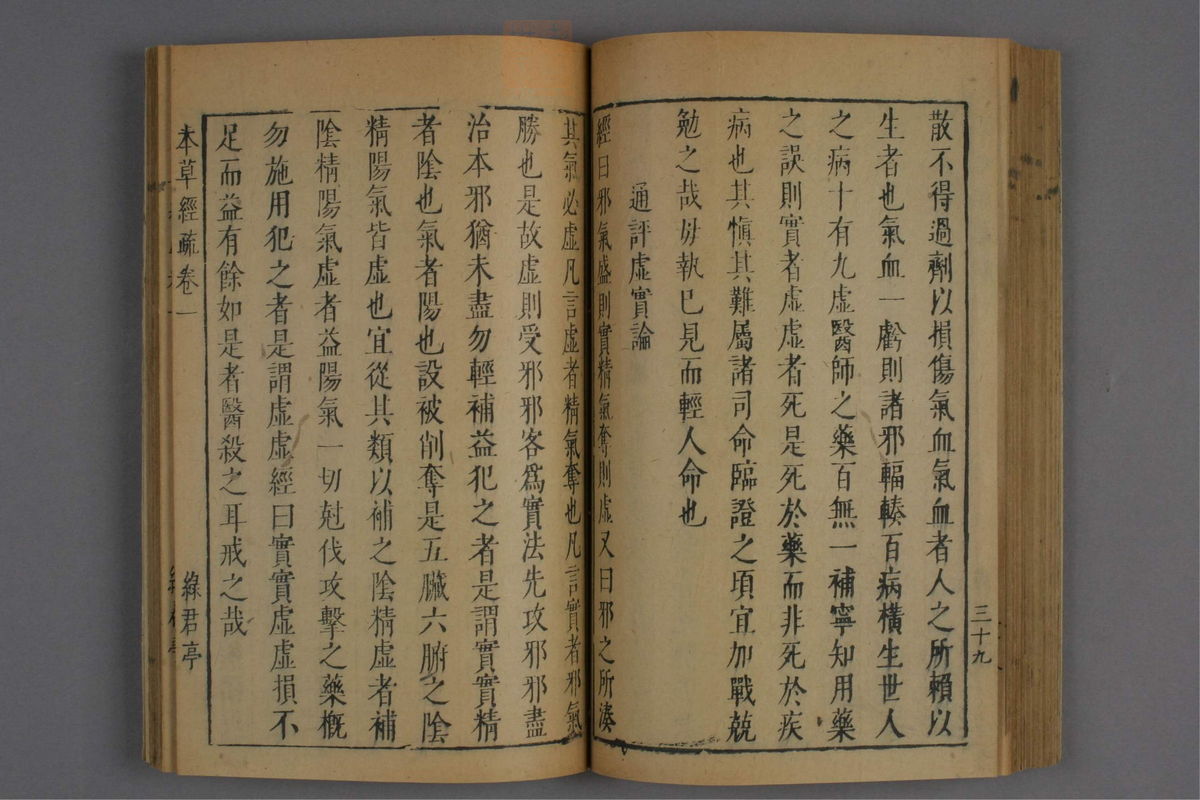 三十九
散不得過劑以損傷氣血氣血者人之所賴以
生者也氣血一虧則諸邪輻輳百病橫生世人
之病十有九虛醫師之藥百無一補寧知用藥
之誤則實者虛虛者死是死於藥而非死於疾
病也其愼其難屬諸司命臨證之頃宜加戰兢
勉之哉毋執已見而輕人命也
通評虛實論
經曰邪氣盛則實精氣奪則虛又曰邪之所湊
其氣必虛凡言虛者精氣奪也凡言實者邪氣
勝也是故虛則受邪邪客爲實法先攻邪邪盡
治本邪猶未盡勿輕補益犯之者是謂實實精
者陰也氣者陽也設被削奪是五臟六腑之陰
精陽氣皆虛也宜從其類以補之陰精虛者補
陰精陽氣虛者益陽氣一切尅伐攻擊之藥槪
勿施用犯之者是謂虛虛經曰實實虛虛損不
足而益有餘如是者醫殺之耳戒之哉
本草經疏卷一
綠君亭